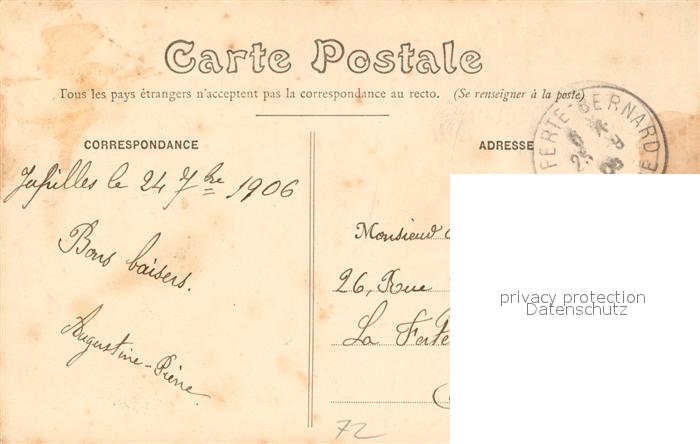 Carte Postale
Tous les pays étrangers n'acceptent pas la correspondance au recto. (Se renseigner à la poste)
CORRESPONDANCE
ADRESSE
FERTE-BERNARD
Jupilles le 24 7bre 1906
Bons baisers.
Augustine-Pierre
Monsieur
26, Rue
La Ferte
72
privacy protection
Datenschutz